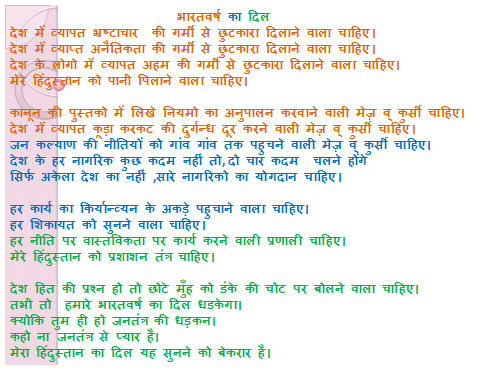 भारतवर्ष का दिल
देश में व्यापत भ्रष्टाचार की गर्मी से छुटकारा दिलाने वाला चाहिए।
देश में व्याप्त अनैतिकता की गर्मी से छुटकारा दिलाने वाला चाहिए।
देश के लोगो में व्यापत अहम की गर्मी से छुटकारा दिलाने वाला चाहिए।
मेरे हिंदुस्तान को पानी पिलाने वाला चाहिए।
कानून की पुस्तको में लिखे नियमो का अनुपालन करवाने वाली मेज़ व् कुर्सी चाहिए।
देश में व्यापत कूड़ा करकट की दुर्गन्ध दूर करने वाली मेज़ व् कुर्सी चाहिए।
जन कल्याण की नीतियों को गांव गांव तक पहुचने वाली मेज़ व् कुर्सी चाहिए।
देश के हर नागरिक कुछ कदम नहीं तो, दो चार कदम चलने होंगे
सिर्फ अकेला देश का नहीं ,सारे नागरिको का योगदान चाहिए।
हर कार्य का किर्यान्व्यन के अकड़े पहुचाने वाला चाहिए।
हर शिकायत को सुनने वाला चाहिए।
हर नीति पर वास्तविकता पर कार्य करने वाली प्रणाली चाहिए।
मेरे हिंदुस्तान को प्रशाशन तंत्र चाहिए।
देश हित की प्रश्न हो तो छोटे मुँह को डंके की चोट पर बोलने वाला चाहिए।
तभी तो हमारे भारतवर्ष का दिल धडकेगा।
क्योकि तुम ही हो जनतंत्र की धड़कन।
कहो ना जनतंत्र से प्यार है।
मेरा हिंदुस्तान का दिल यह सुनने को बेकरार है।